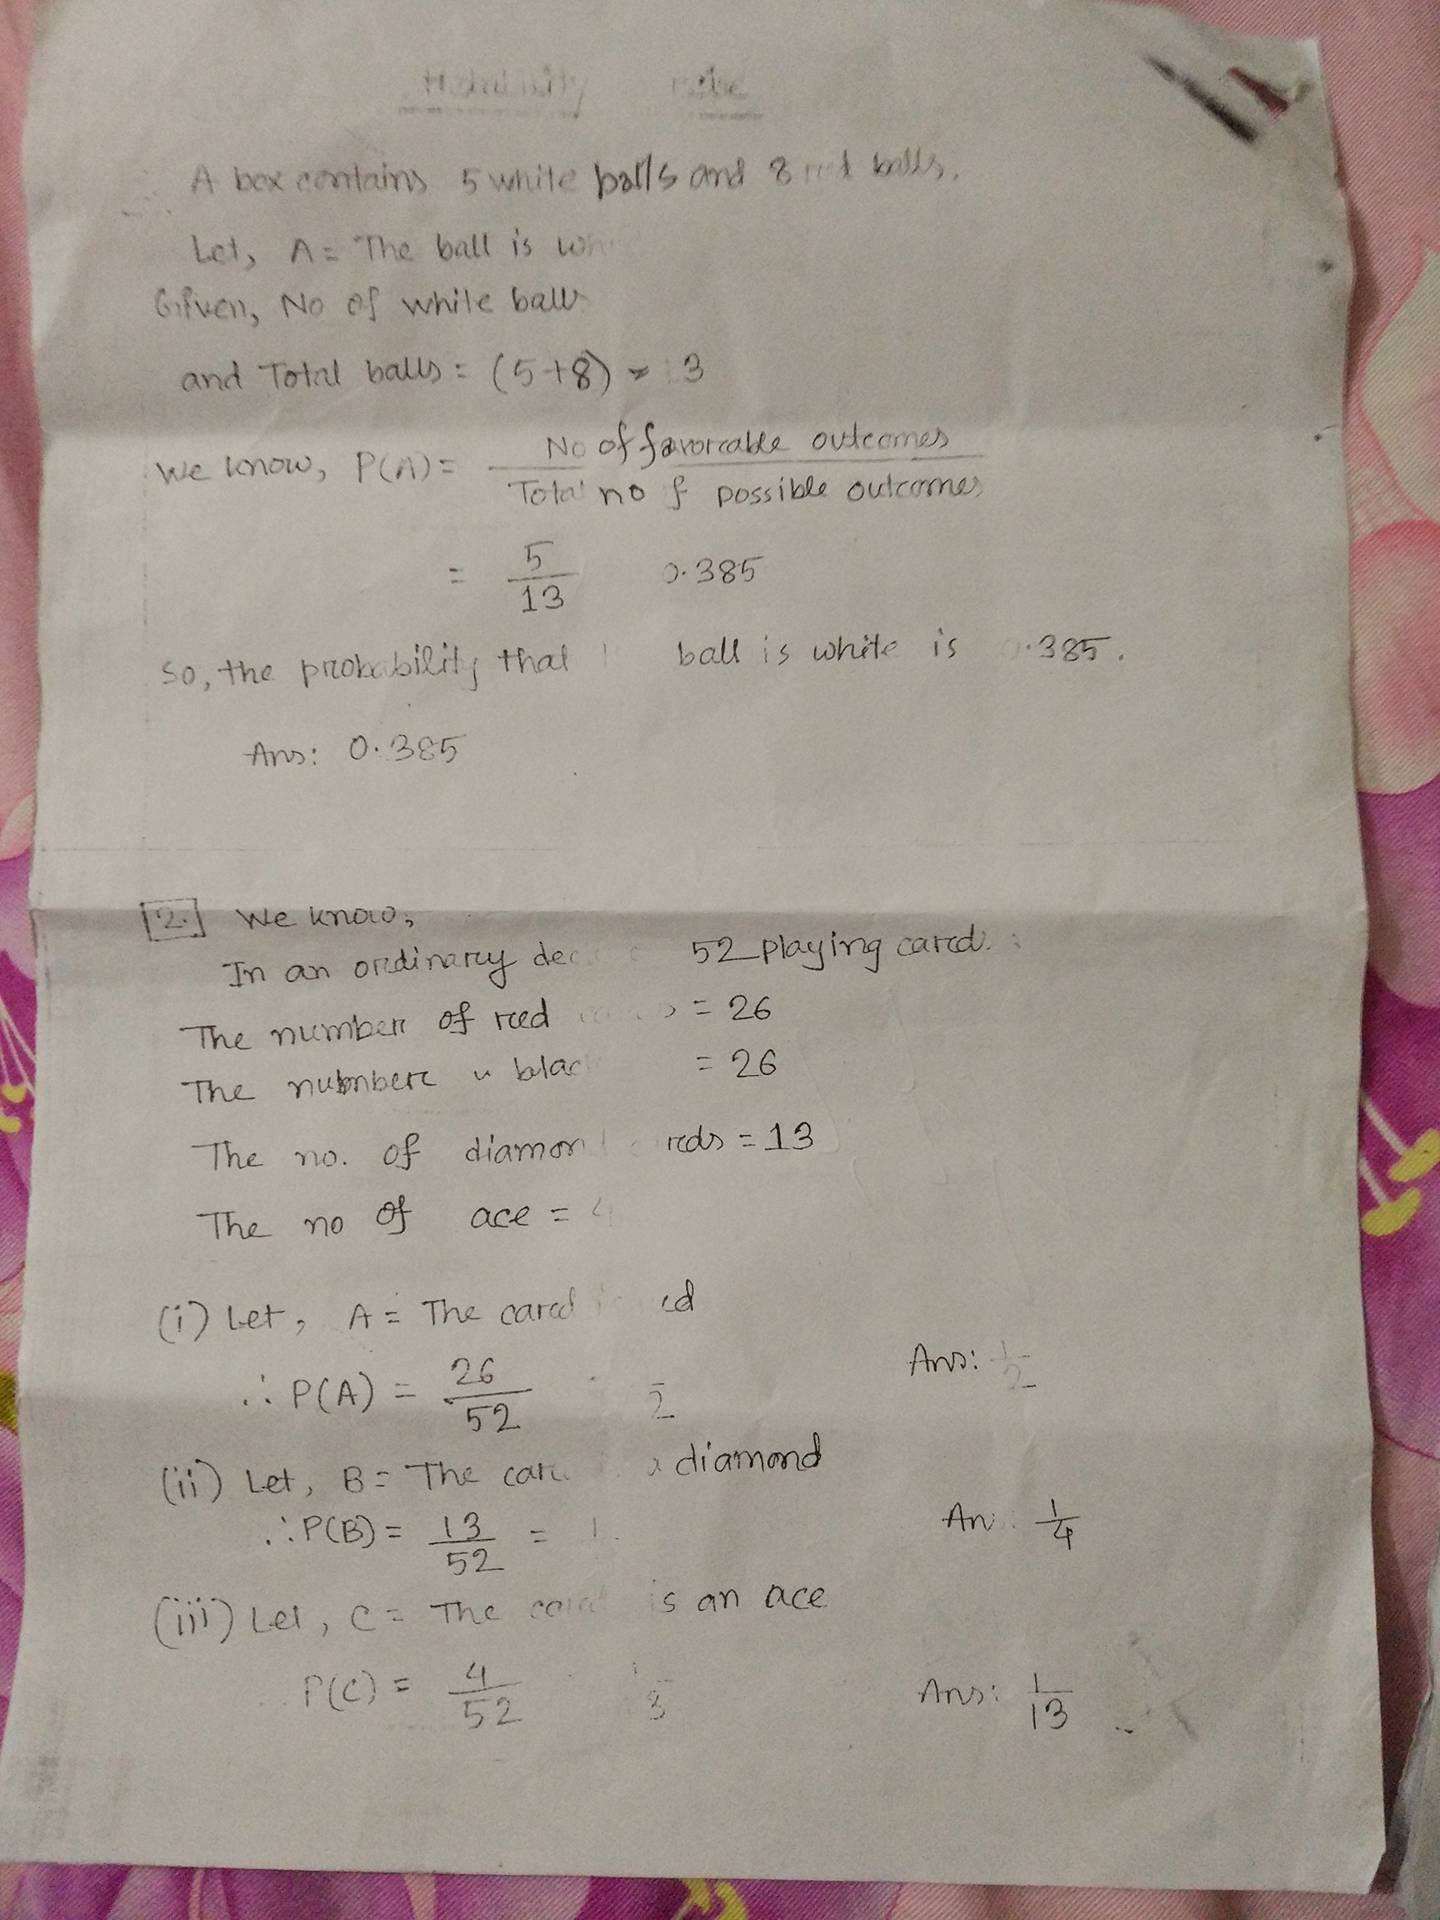 Probability
A box contains 5 white balls and 8 red balls.
Let, A = The ball is
Given, No of white balls
and Total balls = (5+8) = 13
We know, P(A) = No of favorcable outcomes / Total no of possible outcomes
= 5/13 0.385
So, the probability that ball is white is 0.385.
Ans: 0.385
2. We know,
In an orcdinarcy 52 playing carcds
The number of rced = 26
The nubmberc " = 26
The no. of diamond carcds = 13
The no of ace = 4
(i) Let, A = The carcd
∴ P(A) = 26/52 2 Ans: 1/2
(ii) Let, B = The a diamond
∴ P(B) = 13/52 = 1 Ans: 1/4
(iii) Let, C = The carcd is an ace
P(C) = 4/52 Ans: 1/13